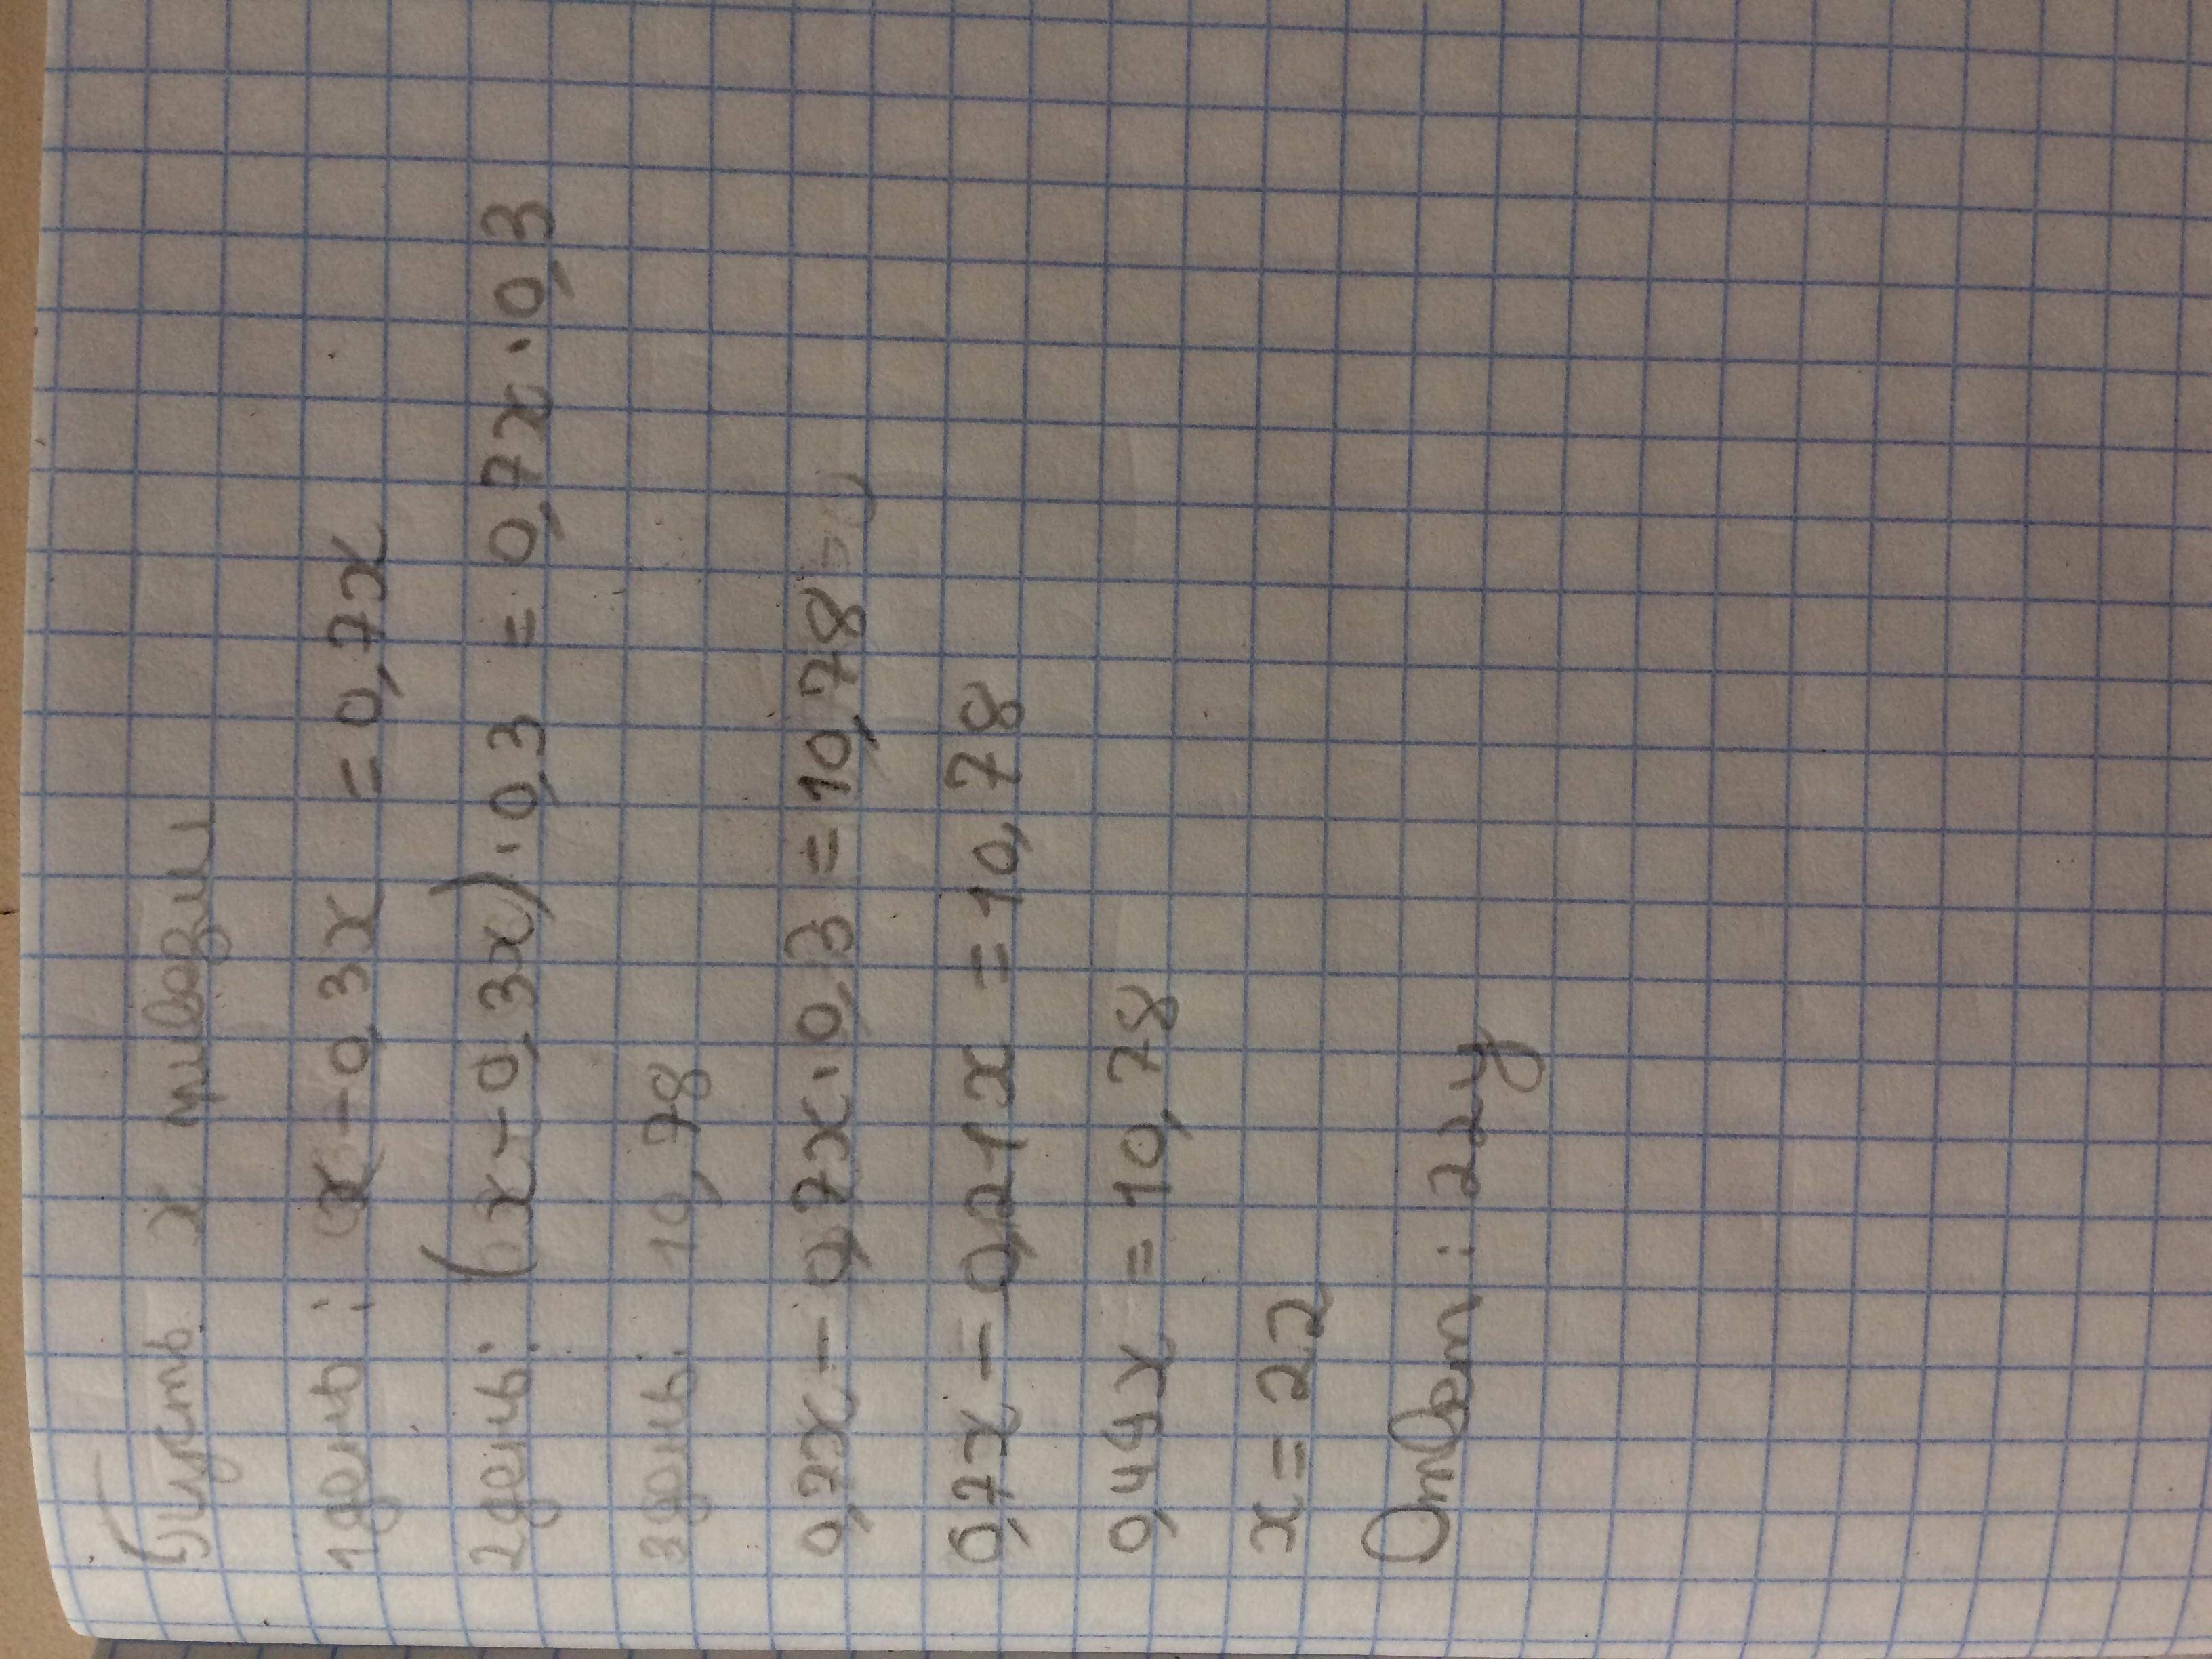 Пусть x привезли
1день: x - 0,3x = 0,7x
2день: (x - 0,3x) · 0,3 = 0,7x · 0,3
3день: 10,78
0,7x - 0,7x · 0,3 = 10,78
0,7x - 0,21x = 10,78
0,49x = 10,78
x = 22
Ответ: 22ц